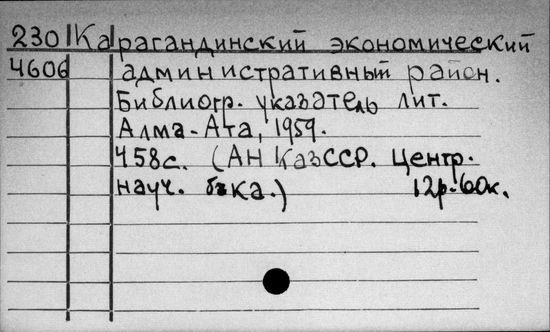 230 Карагандинский экономический
4606 административный район.
Библиогр. указатель лит.
Алма-Ата, 1959.
458с. (АН КазССР. Центр.
науч. б-ка.) 12р.60к.